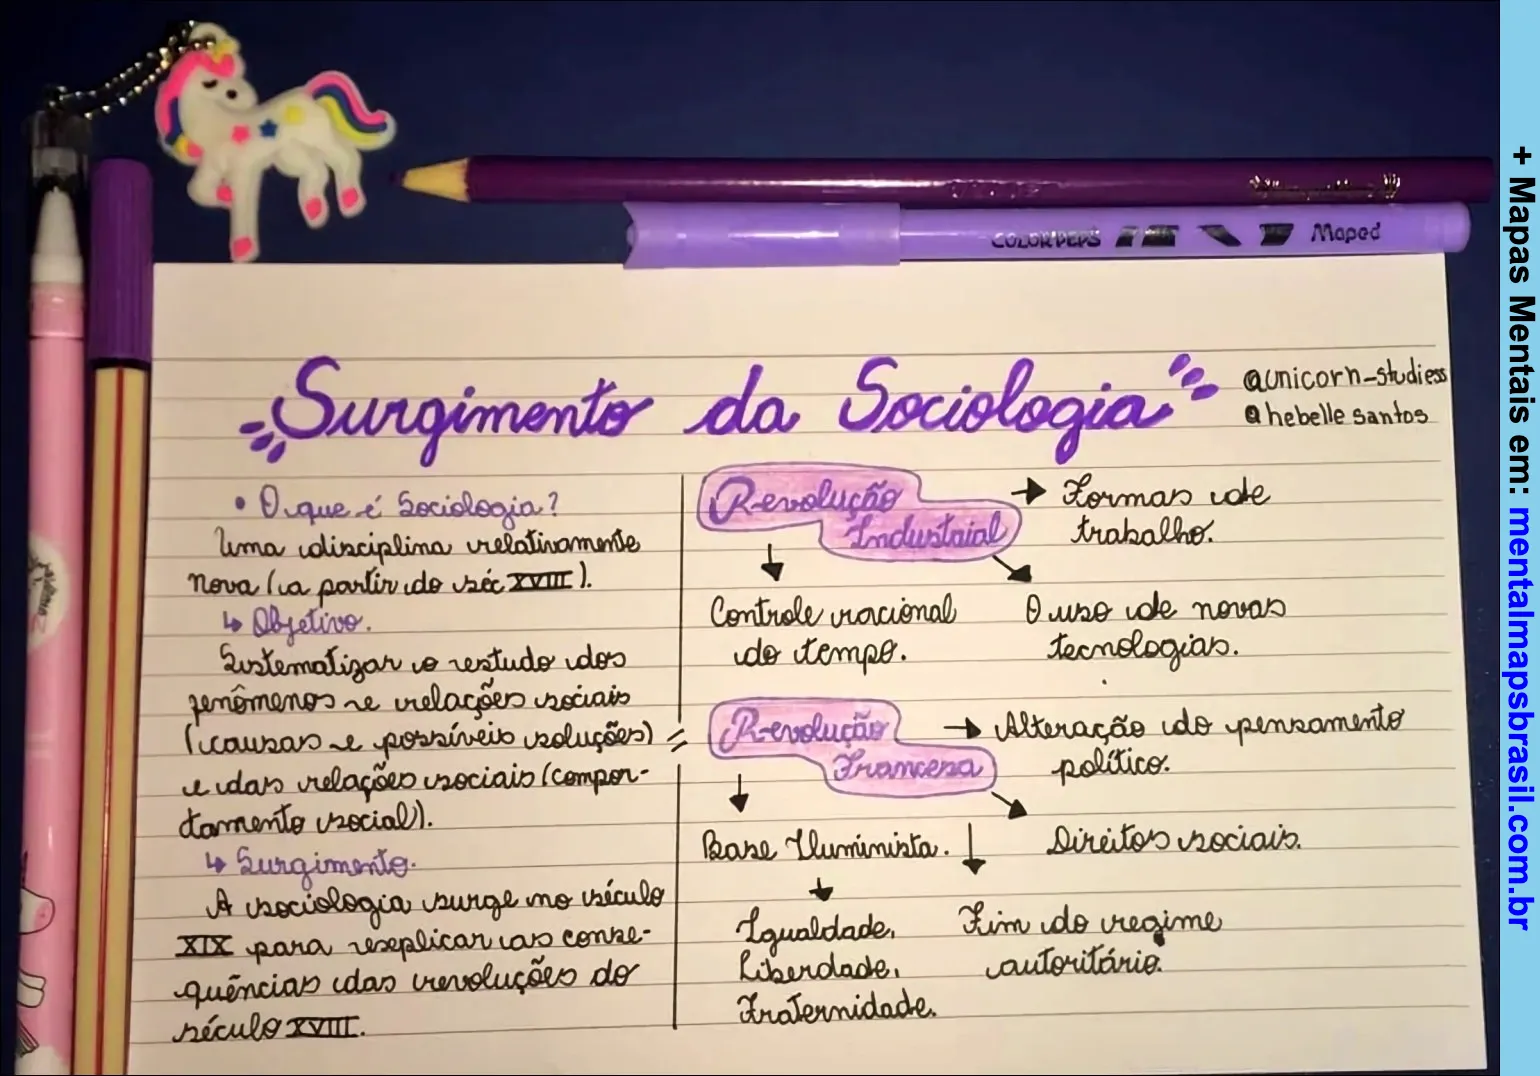 COLOR'PEPS Maped
Surgimento da Sociologia
@unicorn-studiess
@hebelle santos
• O que é Sociologia?
Uma disciplina relativamente
nova (a partir do séc XVIII).
↳ Objetivo.
Sistematizar o estudo dos
fenômenos e relações sociais
(causas e possíveis soluções)
e das relações sociais (compor-
tamento social).
↳ Surgimento.
A sociologia surge no século
XIX para explicar as conse-
quências das revoluções do
século XVIII.
Revolução
Industrial
→ Formas de
trabalho.
Controle racional
do tempo.
O uso de novas
tecnologias.
Revolução
Francesa
→ Alteração do pensamento
político.
Base Iluminista.
Direitos sociais.
Igualdade,
Liberdade,
Fraternidade.
Fim do regime
autoritário.
+ Mapas Mentais em: mentalmapsbrasil.com.br